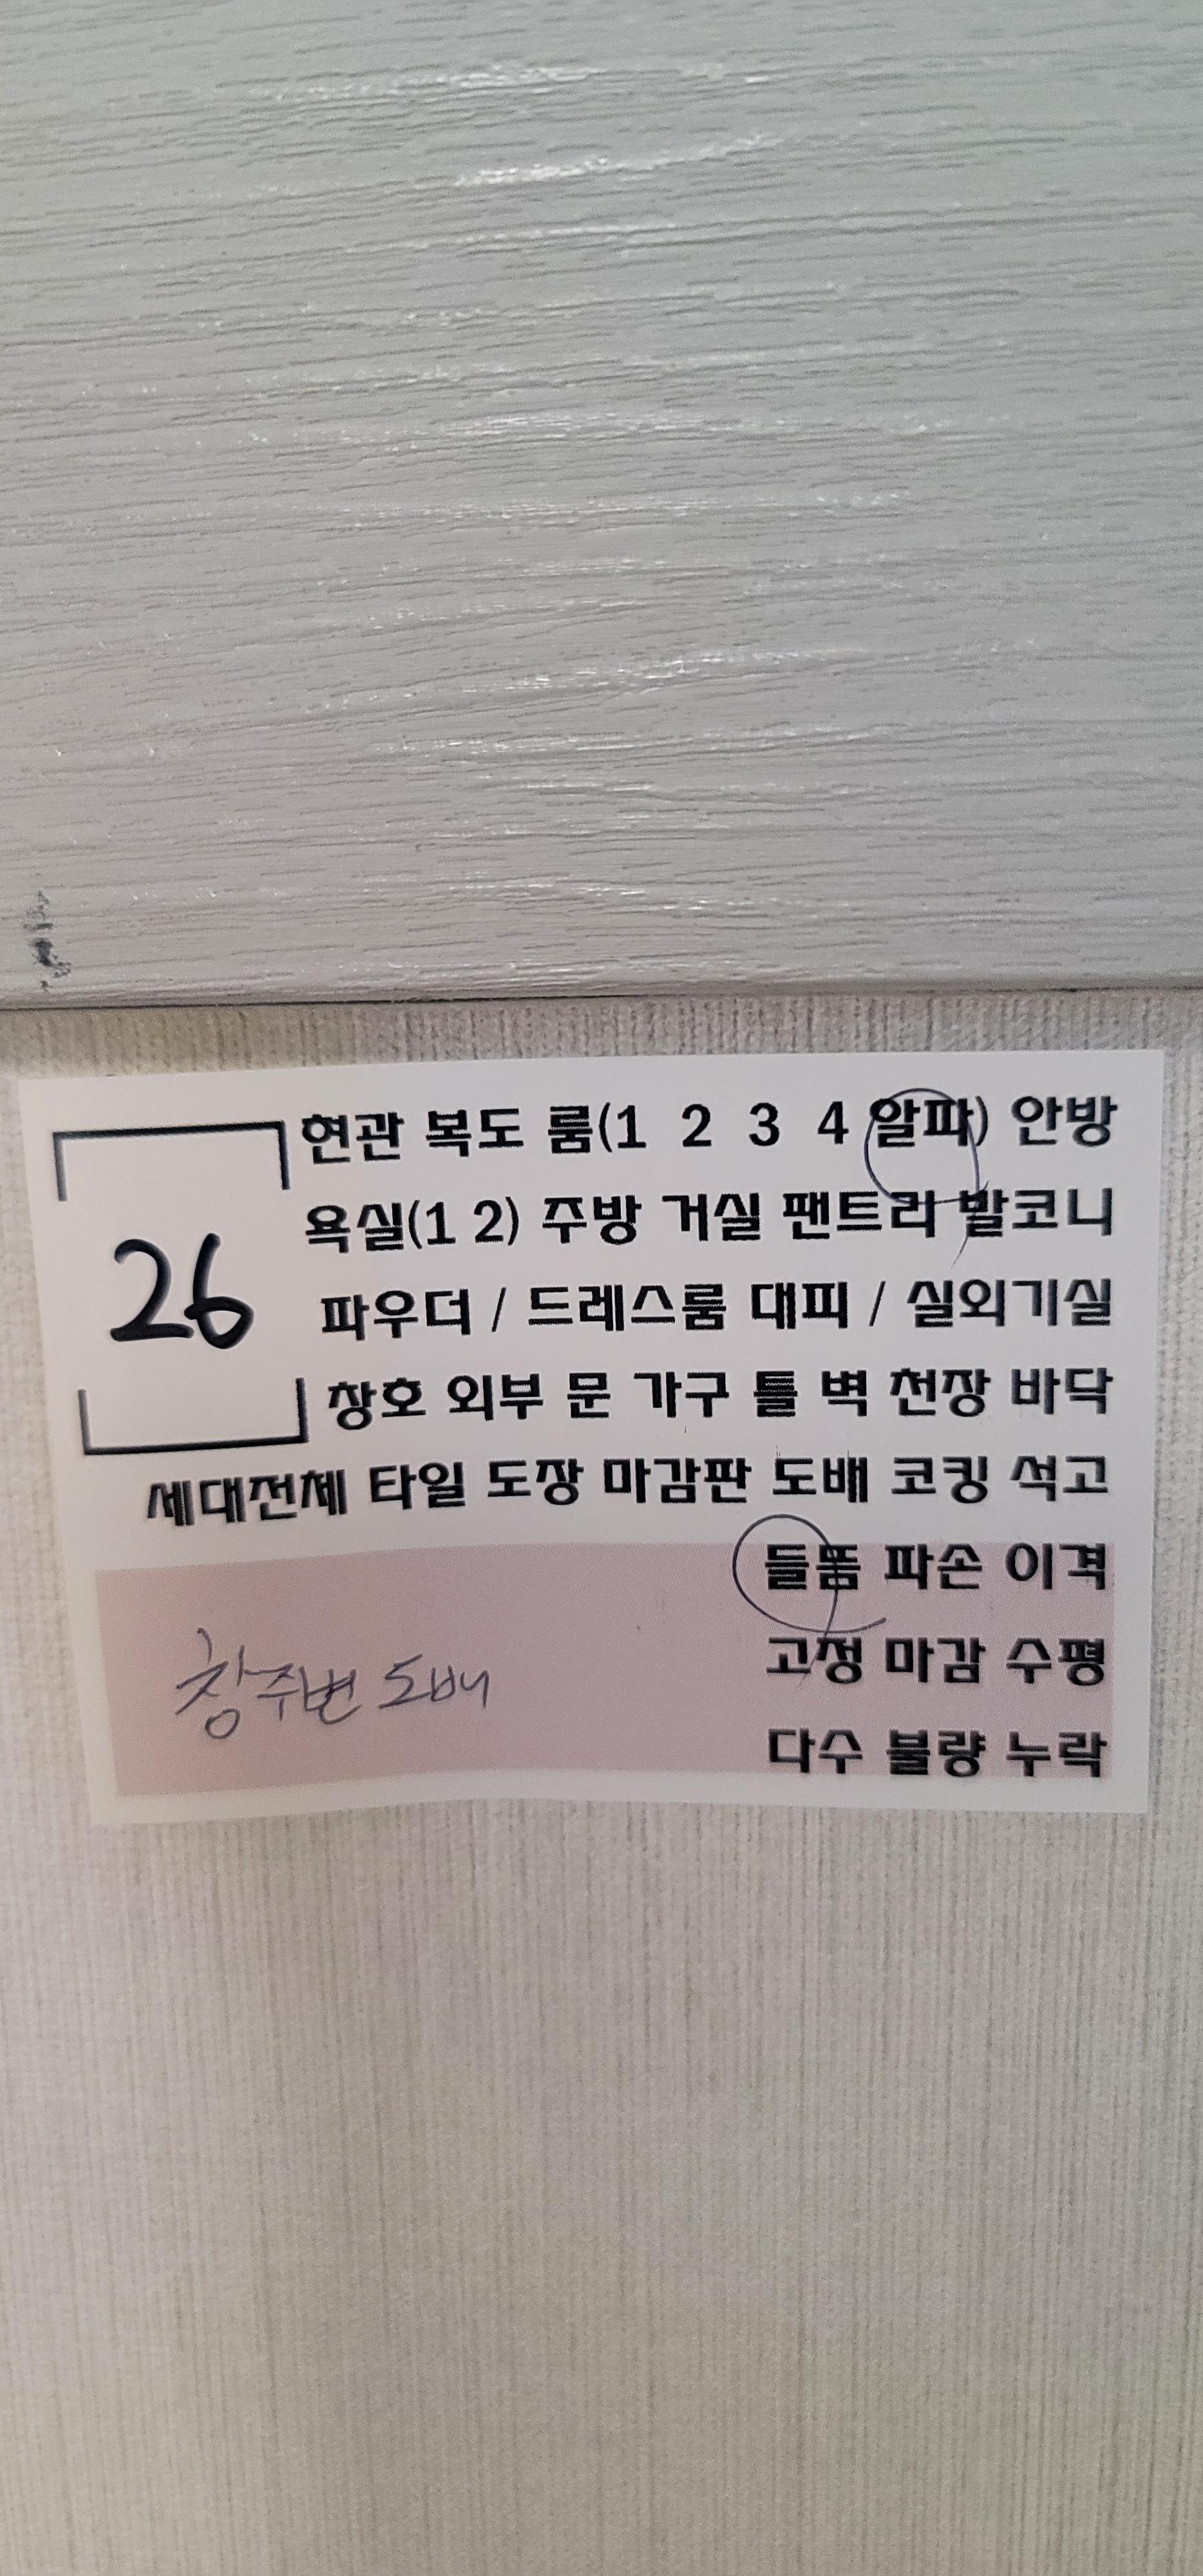 현관 복도 룸(1 2 3 4 알파) 안방
욕실(1 2) 주방 거실 팬트리 발코니
26
파우더 / 드레스룸 대피 / 실외기실
창호 외부 문 가구 틀 벽 천장 바닥
세대전체 타일 도장 마감판 도배 코킹 석고
들뜸 파손 이격
고정 마감 수평
창주변 도배
다수 불량 누락